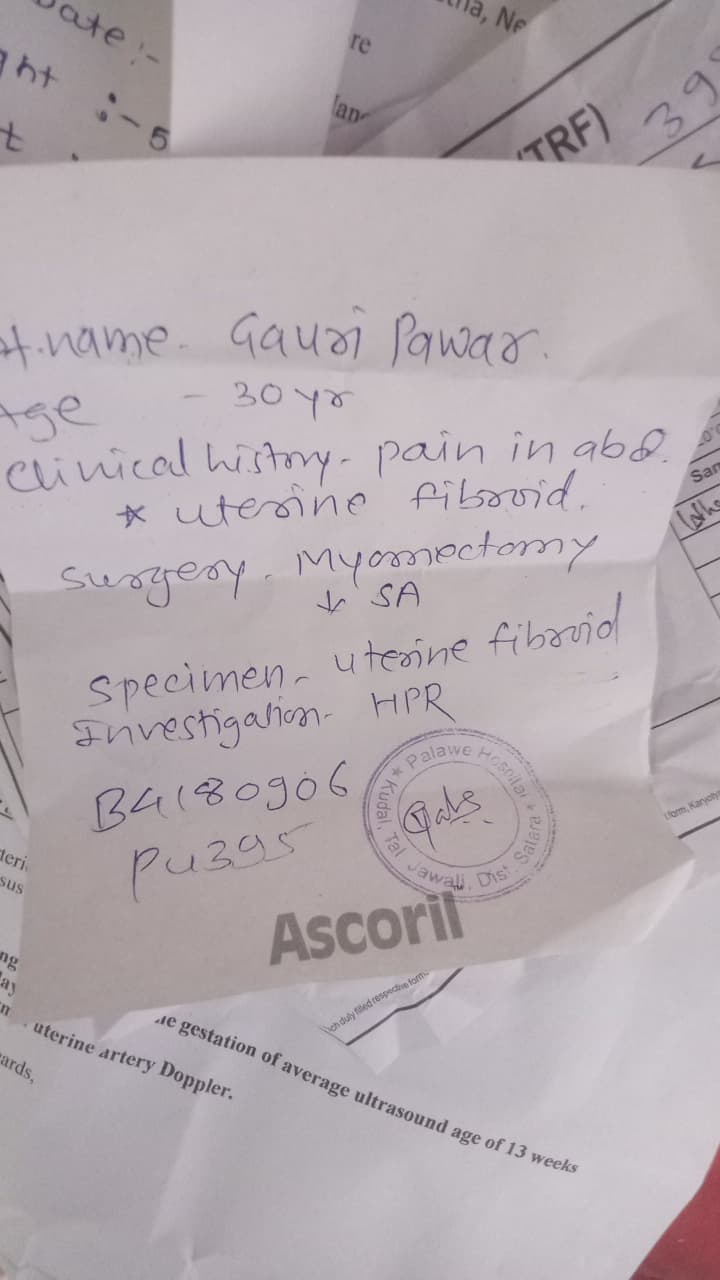 ate :-
ght :- 5
t
re
(TRF)
39
Pt. name - Gauri Pawar.
Age - 30 yr
clinical history - pain in abd.
* uterine fibroid.
surgery - Myomectomy
↓ SA
specimen - uterine fibroid
Investigation - HPR
B4180906
PU395
★ Palawe Hospital ★ Kudal, Tal Jawali, Dist. Satara
Ascoril
San
form, Karyoty
sus
ng
ich duly filled respective form
ards,
gestation of average ultrasound age of 13 weeks
uterine artery Doppler.